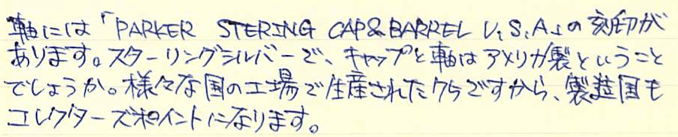 軸には「PARKER STERING CAP&BARREL U.S.A」の刻印が
あります。スターリングシルバーで、キャップと軸はアメリカ製ということ
でしょうか。様々な国の工場で生産されたクラですから、製造国も
コレクターズポイントになります。